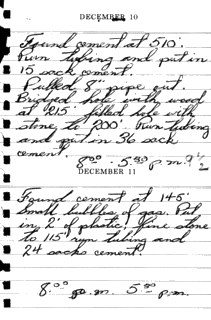 DECEMBER 10
Found cement at 510'.
Run tubing and put in
15 sack cement.
Pulled 8" pipe out.
Bridged hole with wood
at 215' filled hole with
stone to 200'. Run tubing
and put in 36 sack
cement.
8 00 - 5 30 p.m. 9 1/2
DECEMBER 11
Found cement at 145'
Small bubbles of gas. Put
in 2' of plastic, fine stone
to 115' run tubing and
24 sacks cement.
8 00 a.m. 5 00 p.m.